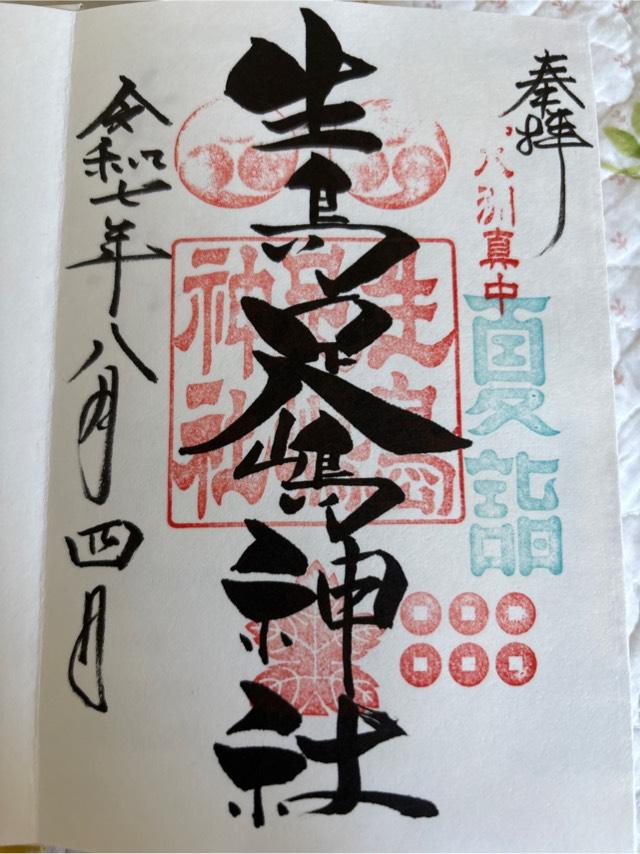 奉拝
八洲真中
夏詣
生島足嶋神社
生島
足嶋
神社
令和七年八月四日